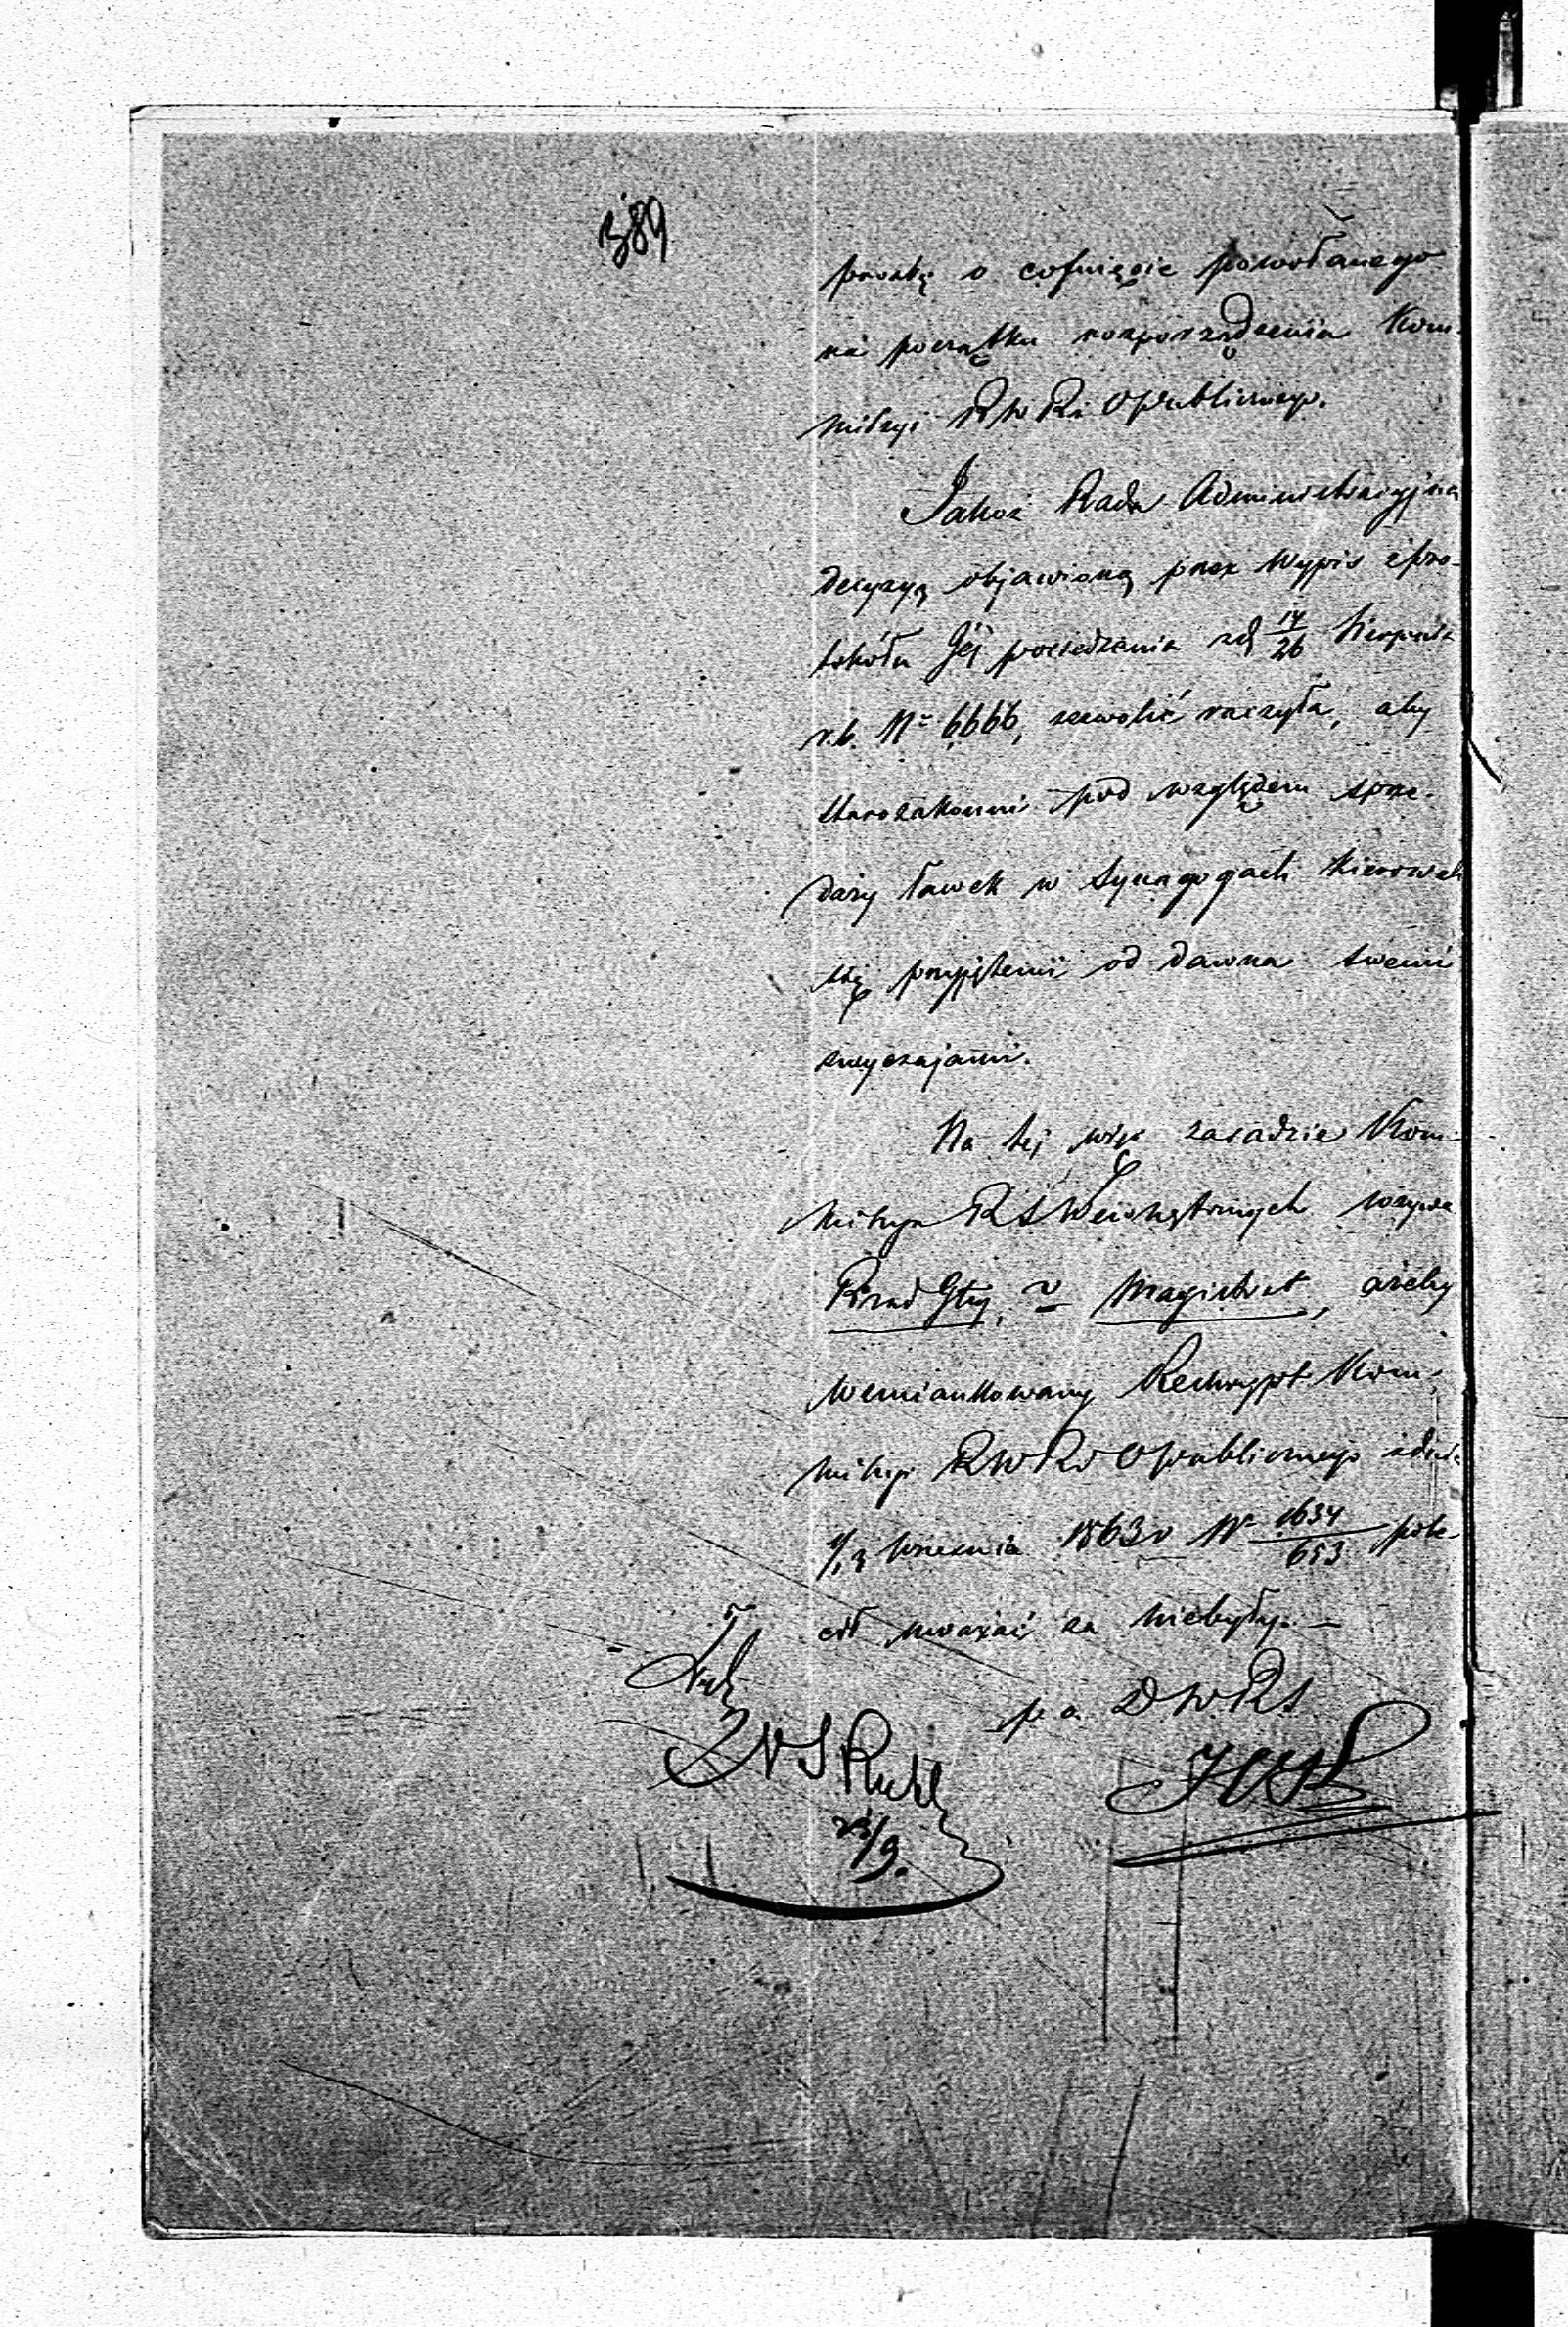 389
prośbę o cofnięcie powołanego
na początku rozporządzenia Kom-
misyi RW Ri OPublicznego.
Jakoż Rada Administracyjna
decyzyą objawioną przez Wypis z pro-
tokółu Jéj posiedzenia z d 14/26 Sierpnia
r.b. Nº 6666, zezwolić raczyła, aby
starozakonni pod względem sprze-
daży ławek w Synagogach kierowali
się przyjętemi od dawna swemi
zwyczajami.
Na tej więc zasadzie Kom-
misya RSWewnętrznych wzywa
Rząd Gbny, v Magistrat, ażeby
wemiankowany Reskrypt Kom-
misyi RW Ri OPublicznego z dnia
1/13 Września 1863 r Nº 1634/653 pole-
cił uważać za niebyły. —
p. o. D. W. R S.
23/9.